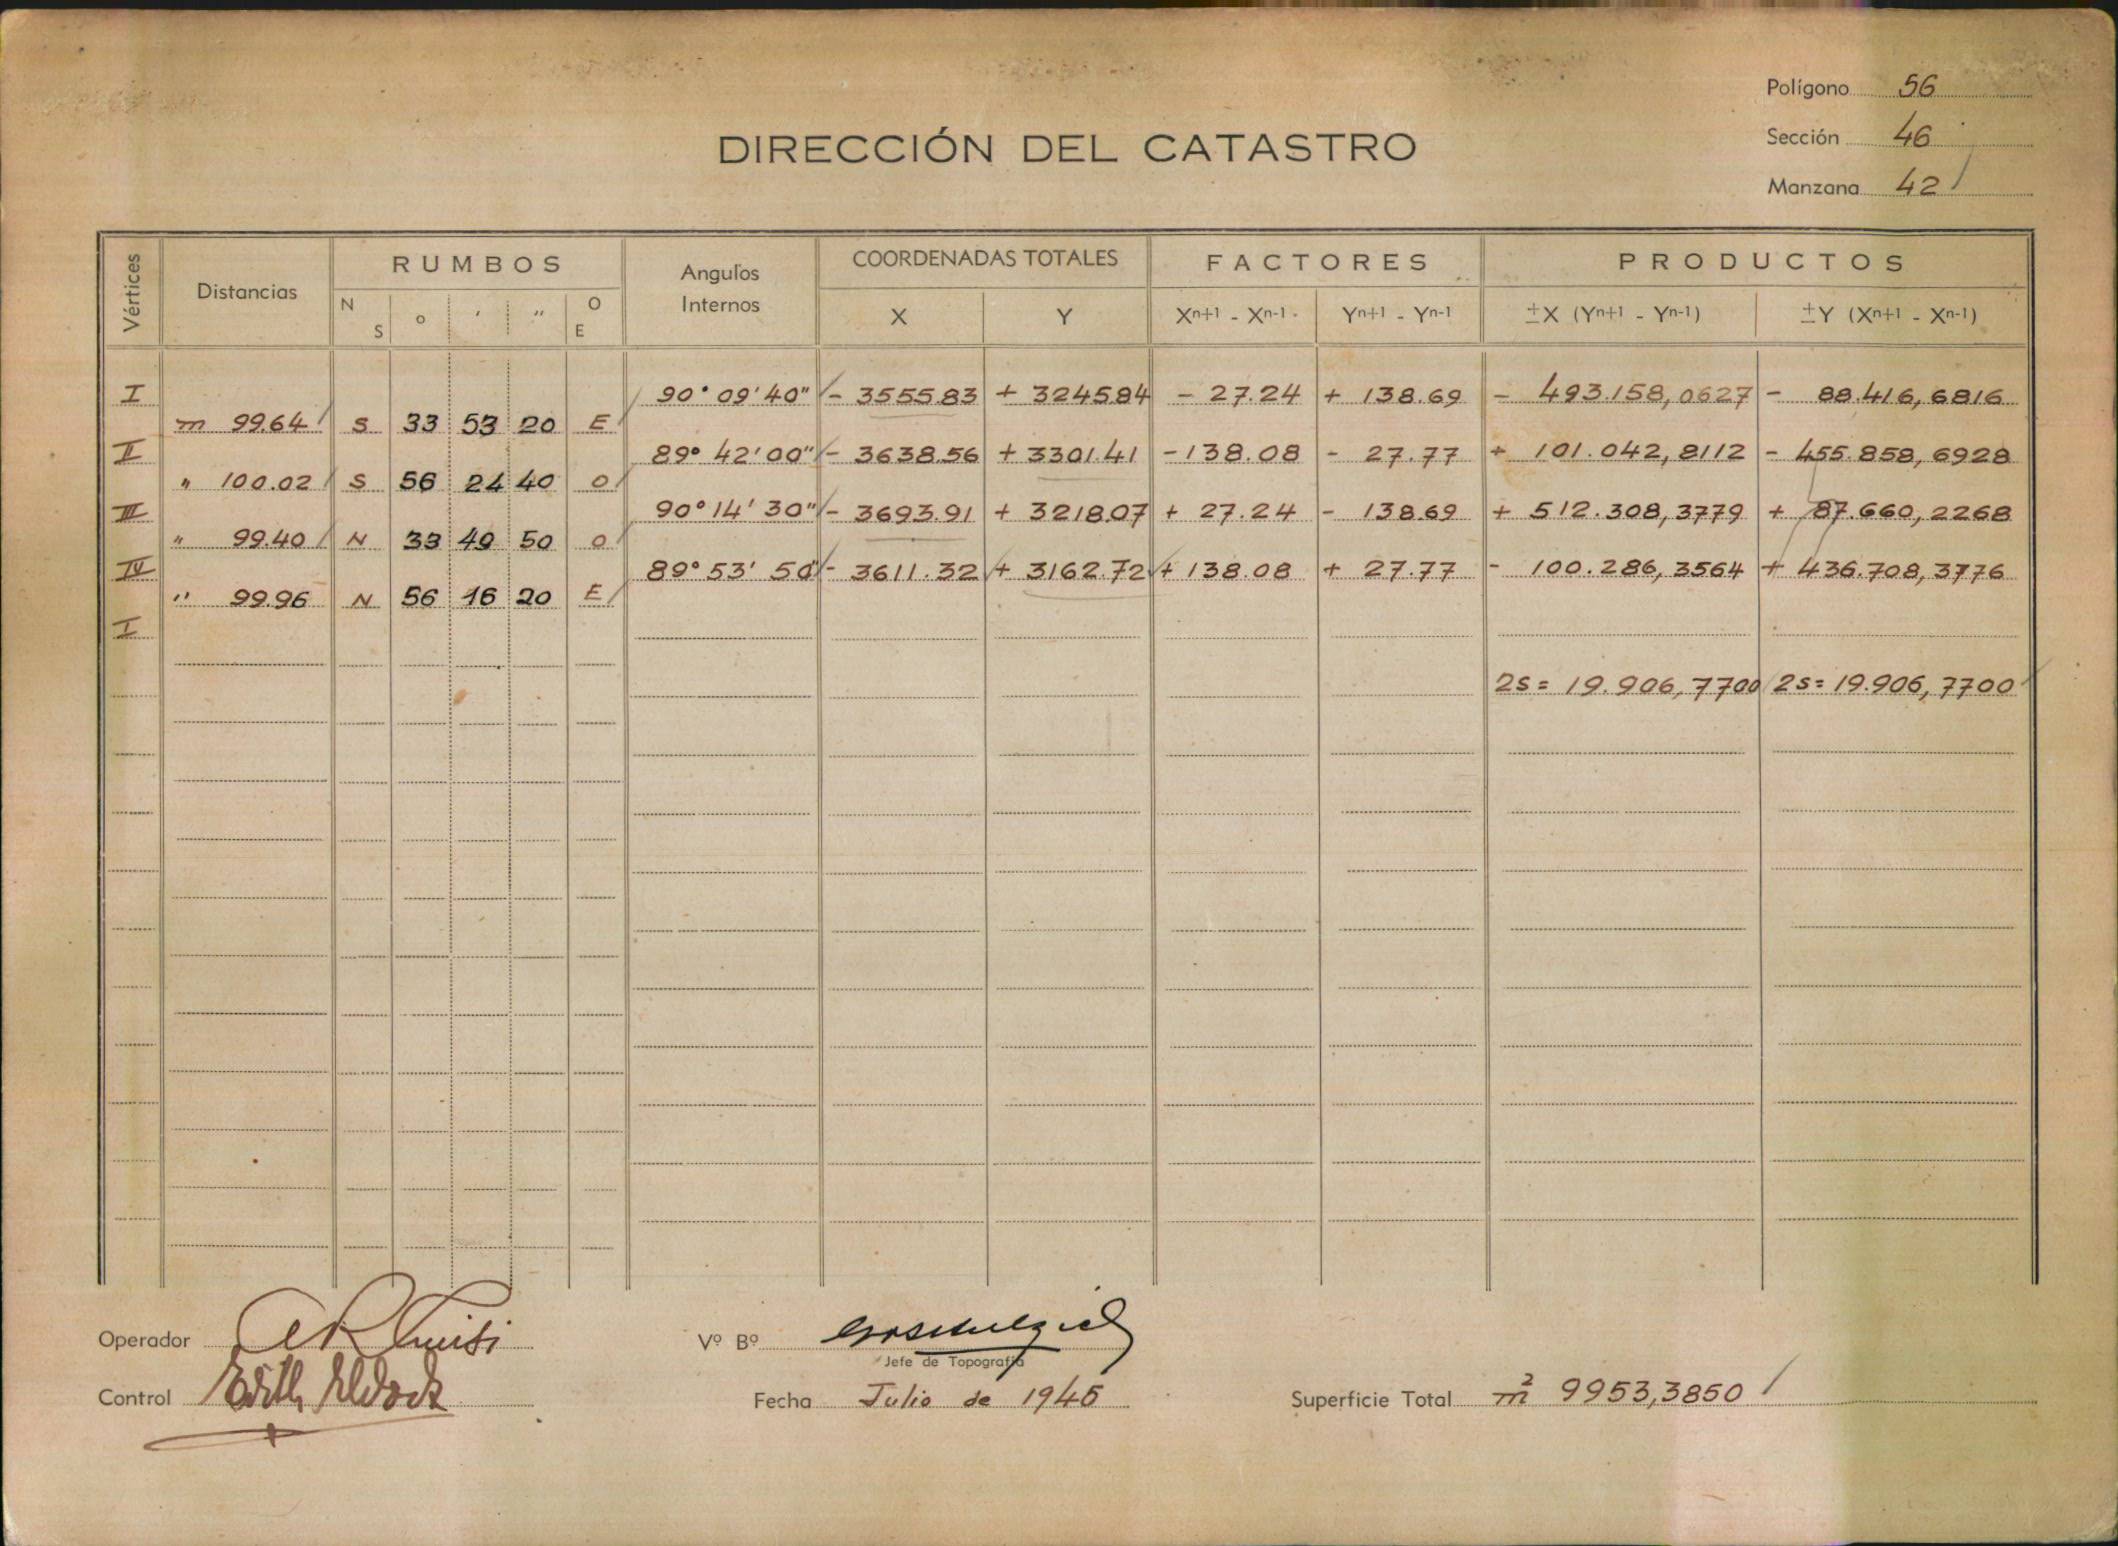 Polígono 56
Sección 46
Manzana 42
DIRECCIÓN DEL CATASTRO
Vértices Distancias RUMBOS Angulos Internos COORDENADAS TOTALES FACTORES PRODUCTOS
N S ° ' " O E X Y Xn+1 - Xn-1 Yn+1 - Yn-1 ±X (Yn+1 - Yn-1) ±Y (Xn+1 - Xn-1)
I 90° 09' 40" - 3555.83 + 3245.84 - 27.24 + 138.69 - 493.158,0627 - 88.416,6816
m 99.64 S 33 53 20 E
II 89° 42' 00" - 3638.56 + 3301.41 - 138.08 - 27.77 + 101.042,8112 - 455.858,6928
" 100.02 S 56 24 40 O
III 90° 14' 30" - 3693.91 + 3218.07 + 27.24 - 138.69 + 512.308,3779 + 87.660,2268
" 99.40 N 33 49 50 O
IV 89° 53' 50" - 3611.32 + 3162.72 + 138.08 + 27.77 - 100.286,3564 + 436.708,3776
" 99.96 N 56 16 20 E
I
2S = 19.906,7700 2S = 19.906,7700
Operador
Vº Bº
Jefe de Topografía
Control Edith
Fecha Julio de 1945
Superficie Total m² 9953,3850